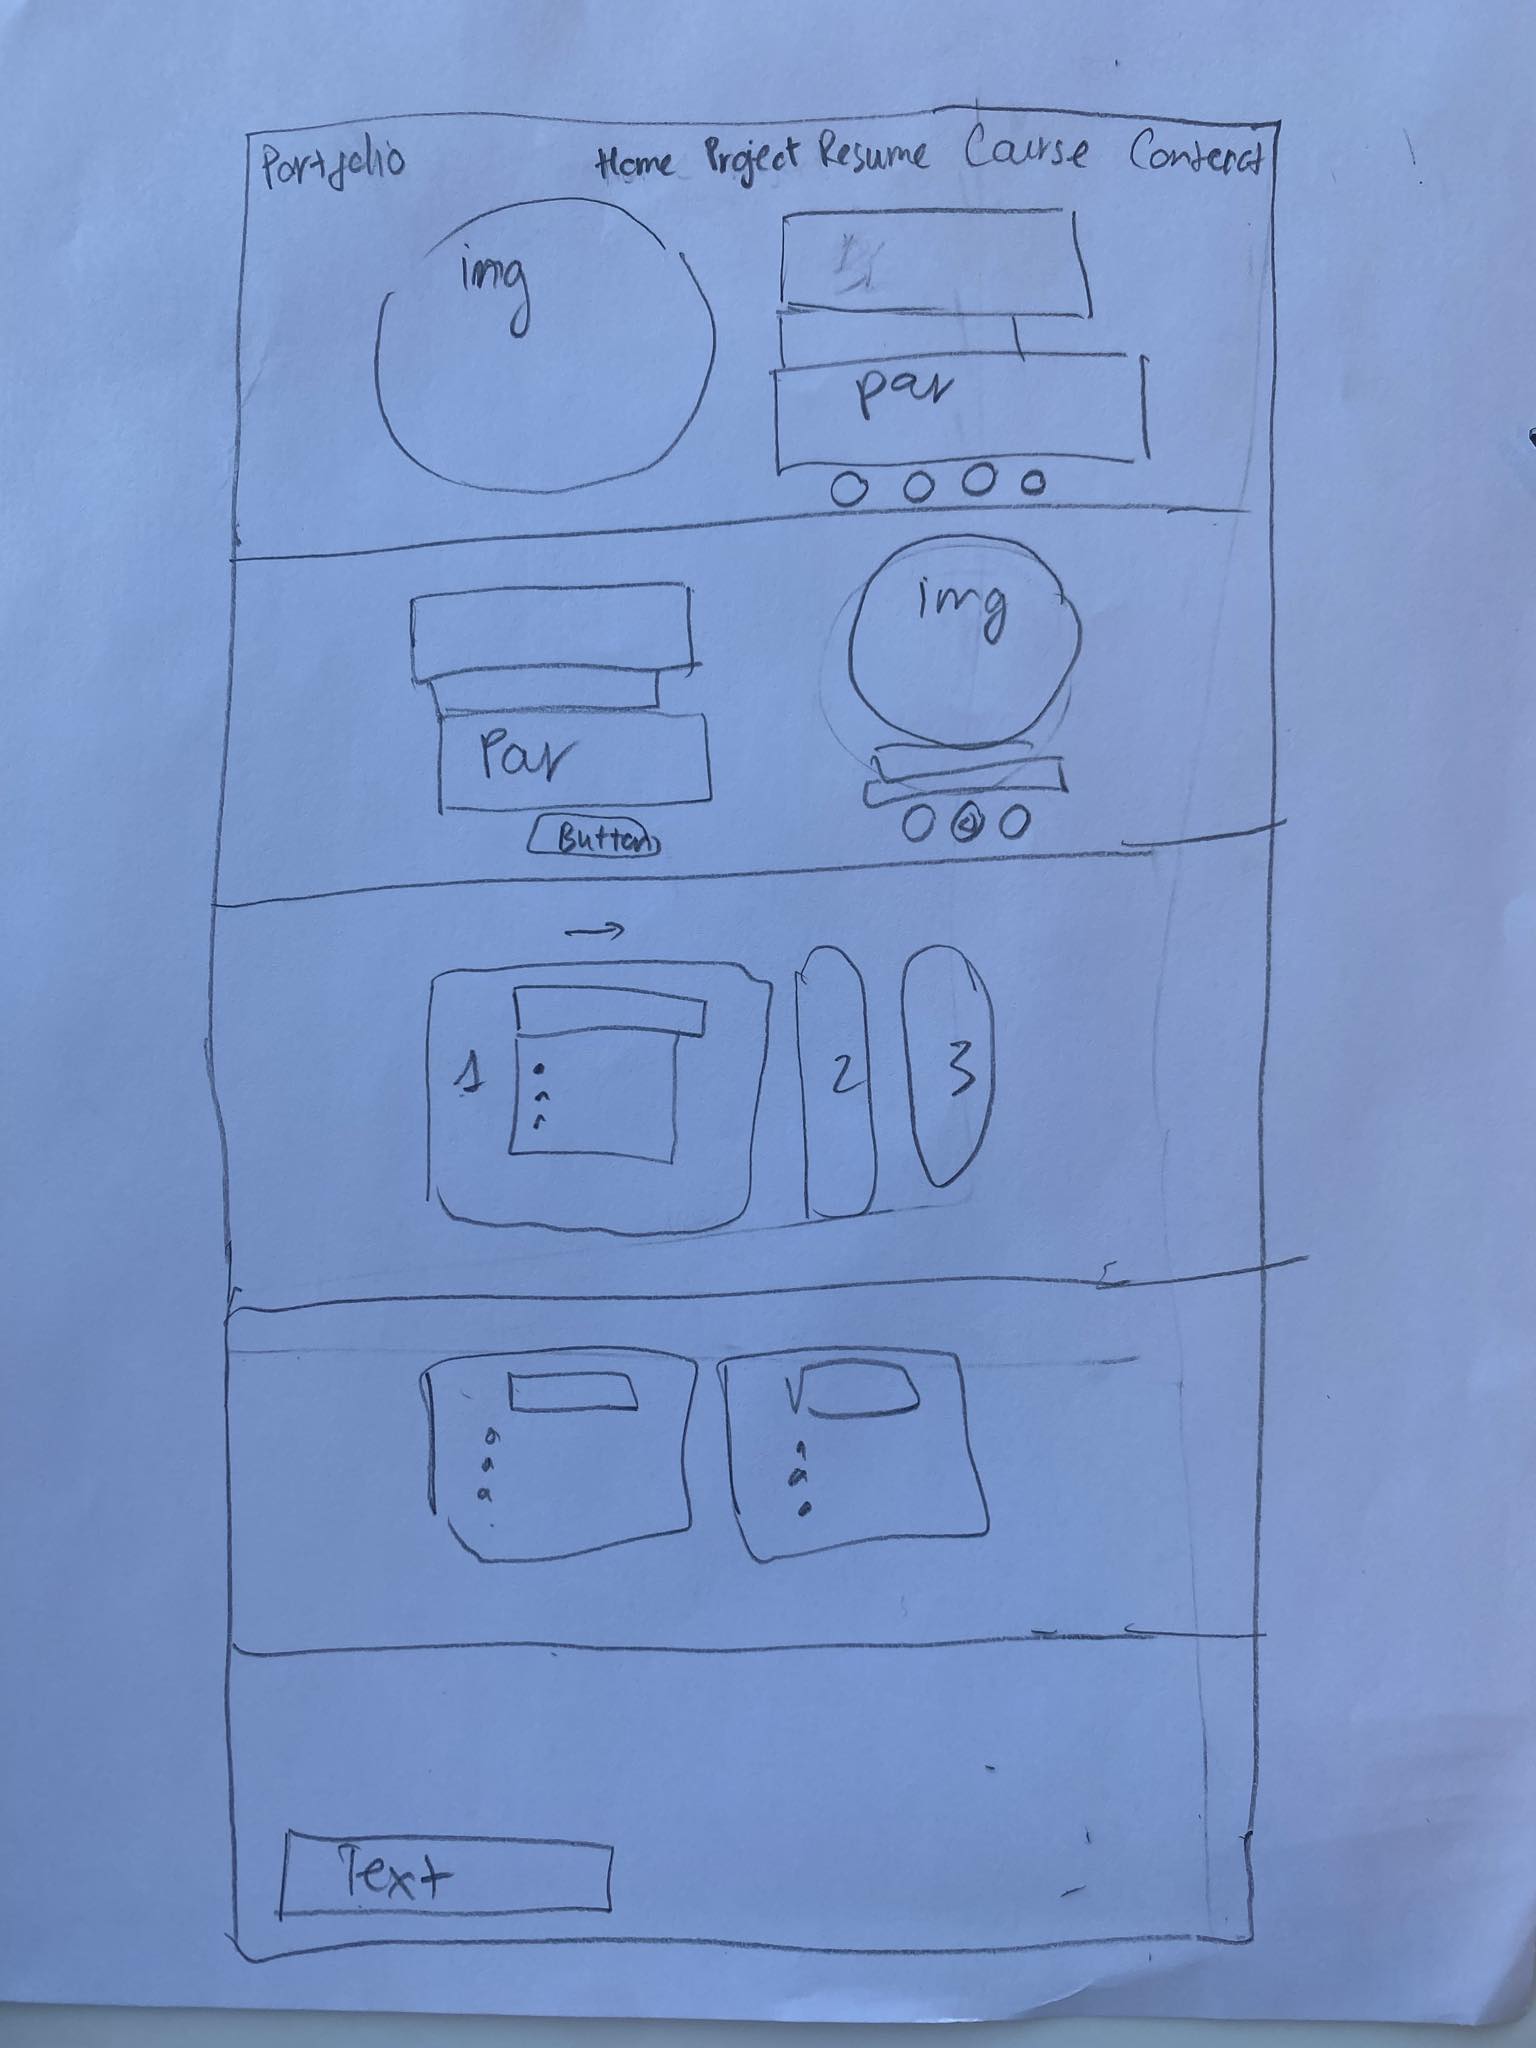 Portfolio Home Project Resume Course Conteract
img
par
img
Par
Button
→
1 2 3
Text